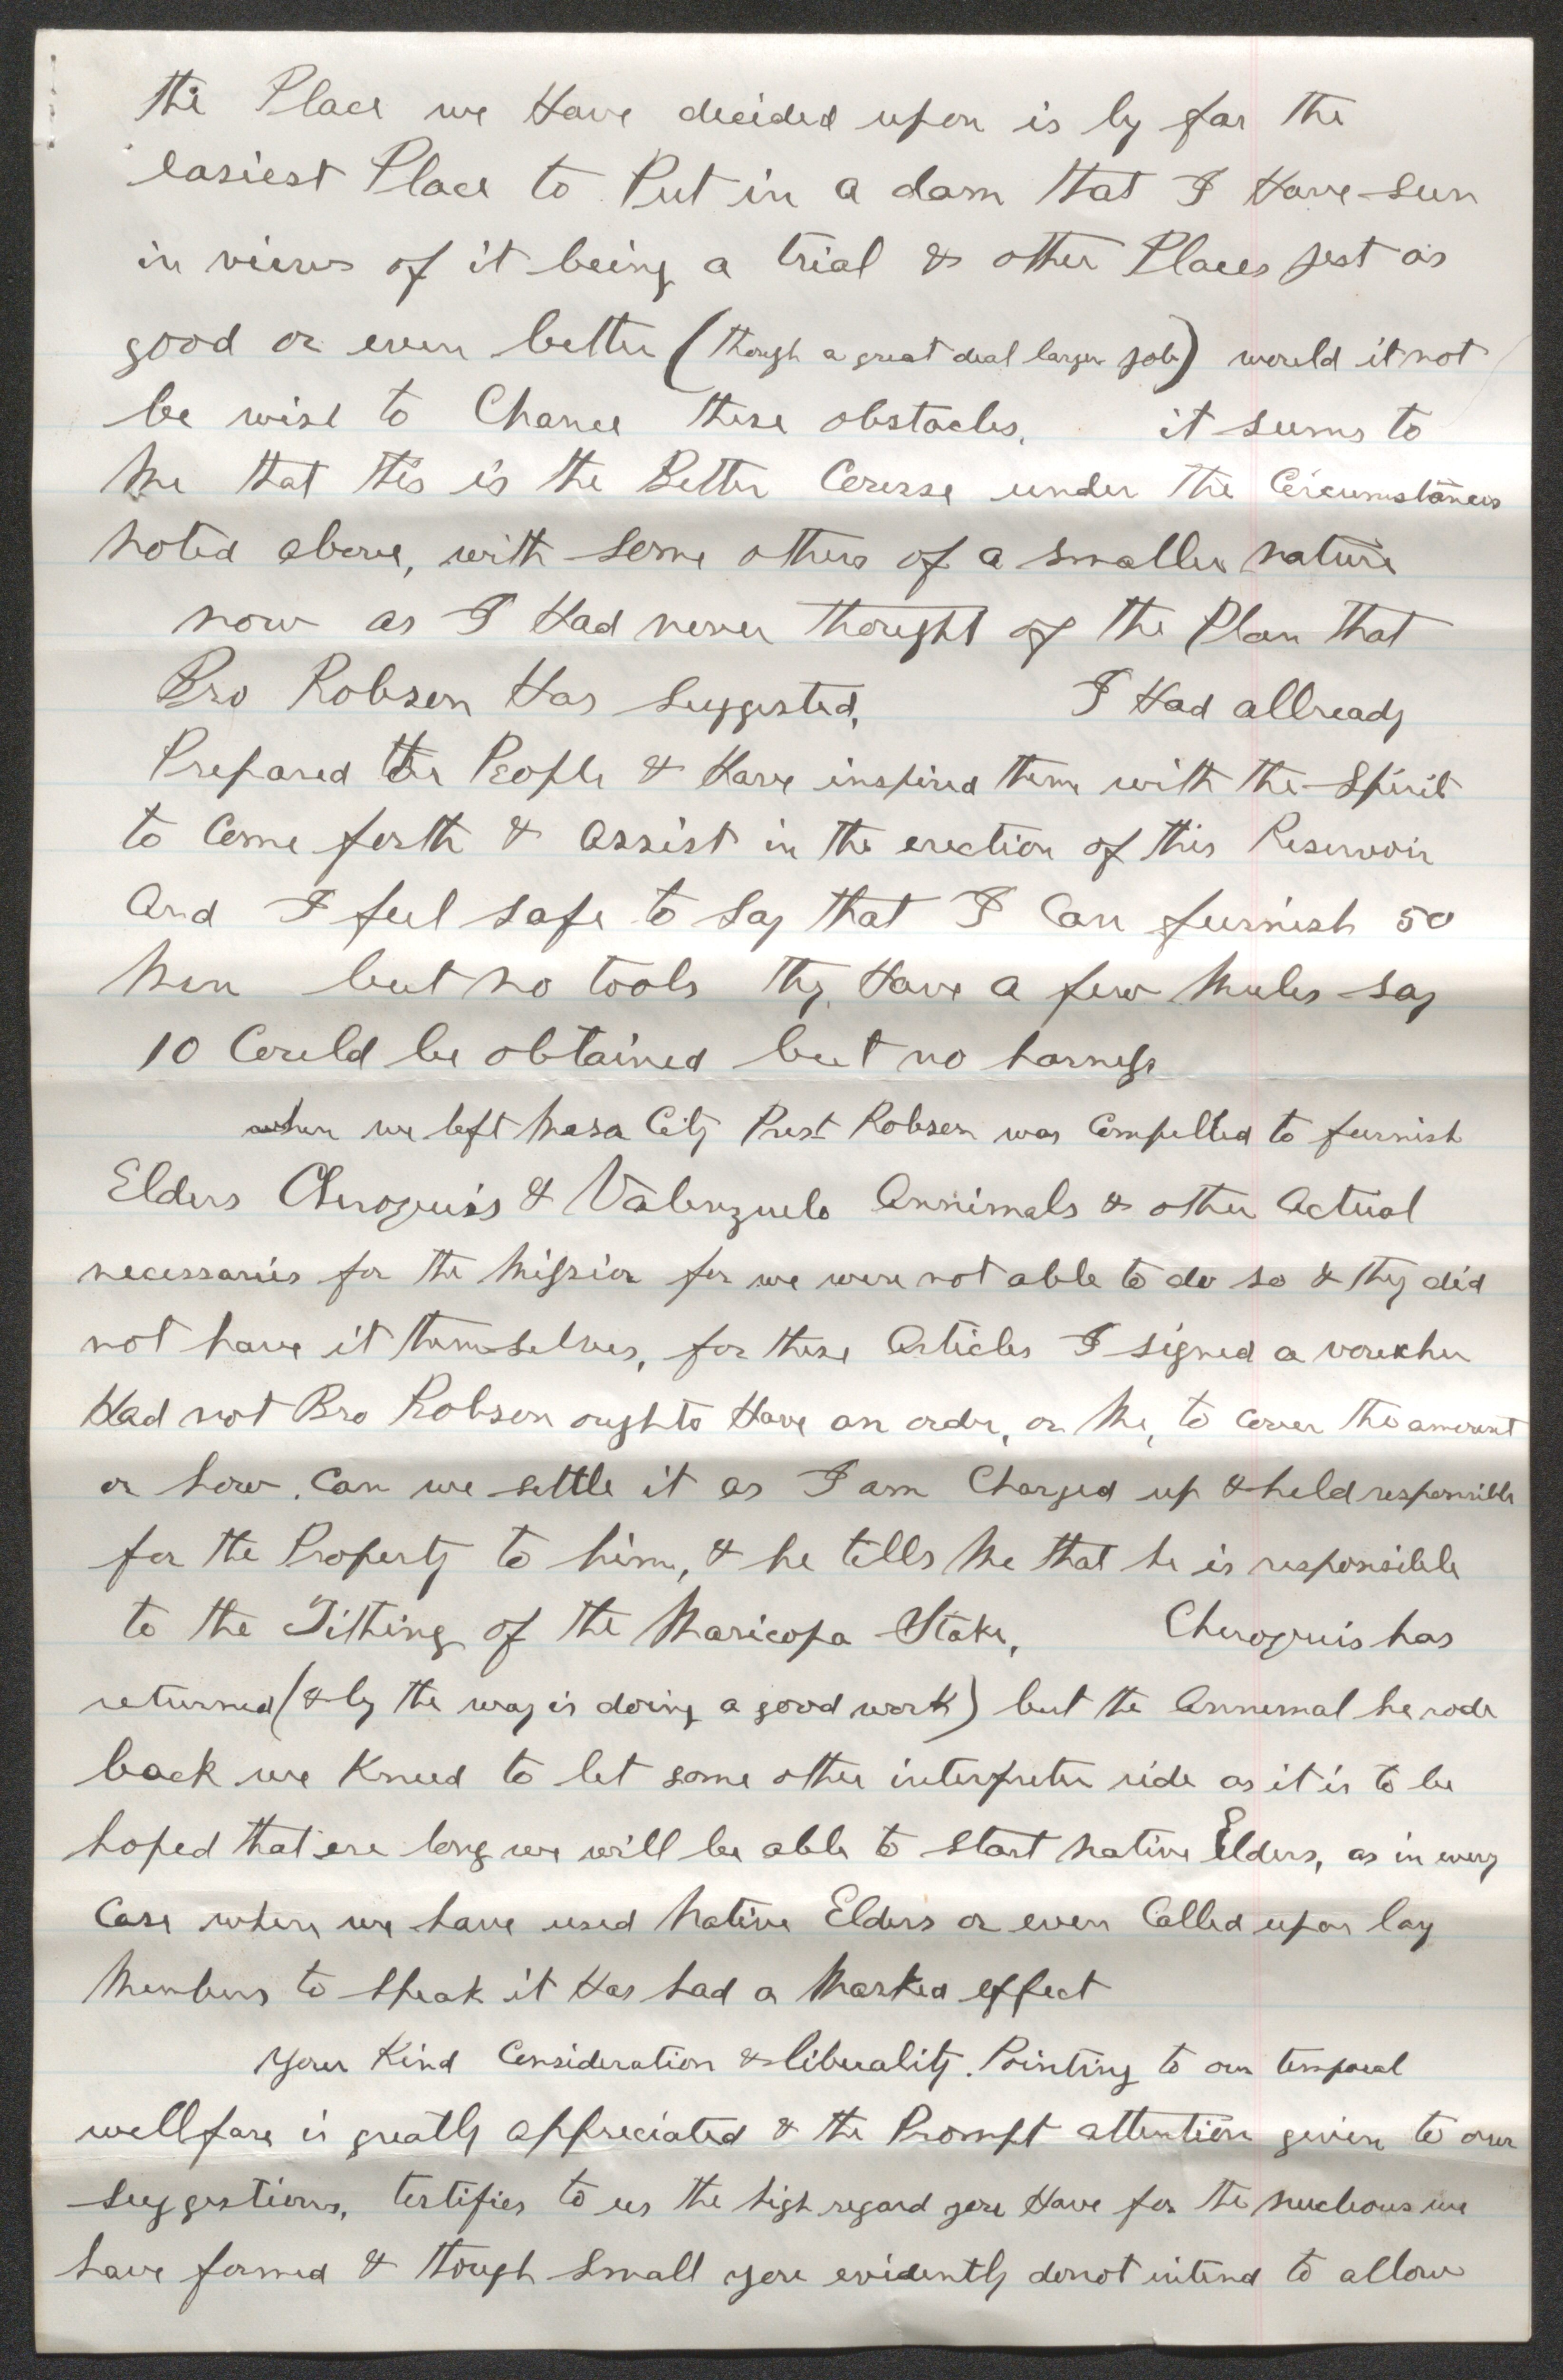 the Place we Have decided upon is by far the
easiest Place to Put in a dam that I Have seen
in views of it being a trial & other Places jest as
good or even better (though a great deal larger job) would it not
be wise to Chance these obstacles. it seems to
me that this is the Better Course under the Circumstances
noted above, with some others of a smaller nature
now as I Had never thought of the Plan that
Bro Robson Has Suggested, I Had allready
Prepared the People & Have inspired them with the Spirit
to Come forth & assist in the erection of this Reservoir
and I feel safe to say that I Can furnish 50
Men but no tools they Have a few Mules say
10 Could be obtained but no harness
when we left Mesa City Prest Robson was Compelled to furnish
Elders Cheroquis & Valenzuelo Annimals & other Actual
necessaries for the Mission for we were not able to do so & they did
not have it themselves, for these Articles I signed a voucher
Had not Bro Robson ought to Have an order, or Me, to Cover the amount
or how. Can we settle it as I am Charged up & held responsible
for the Property to him, & he tells Me that he is responsible
to the Tithing of the Maricopa Stake, Cheroquis has
returned (& by the way is doing a good work) but the Annemal he rode
back we Kneed to let some other interpreter ride as it is to be
hoped that ere long we will be able to start native Elders, as in every
Case where we have used Native Elders or even Called upon lay
Members to Speak it Has had a Marked effect
Your Kind Consideration & liberality. Pointing to our temporal
wellfare is greatly appreciated & the Prompt attention given to our
suggestions, testifies to us the high regard you Have for the nucleous we
have formed & though Small you evidently donot intend to allow